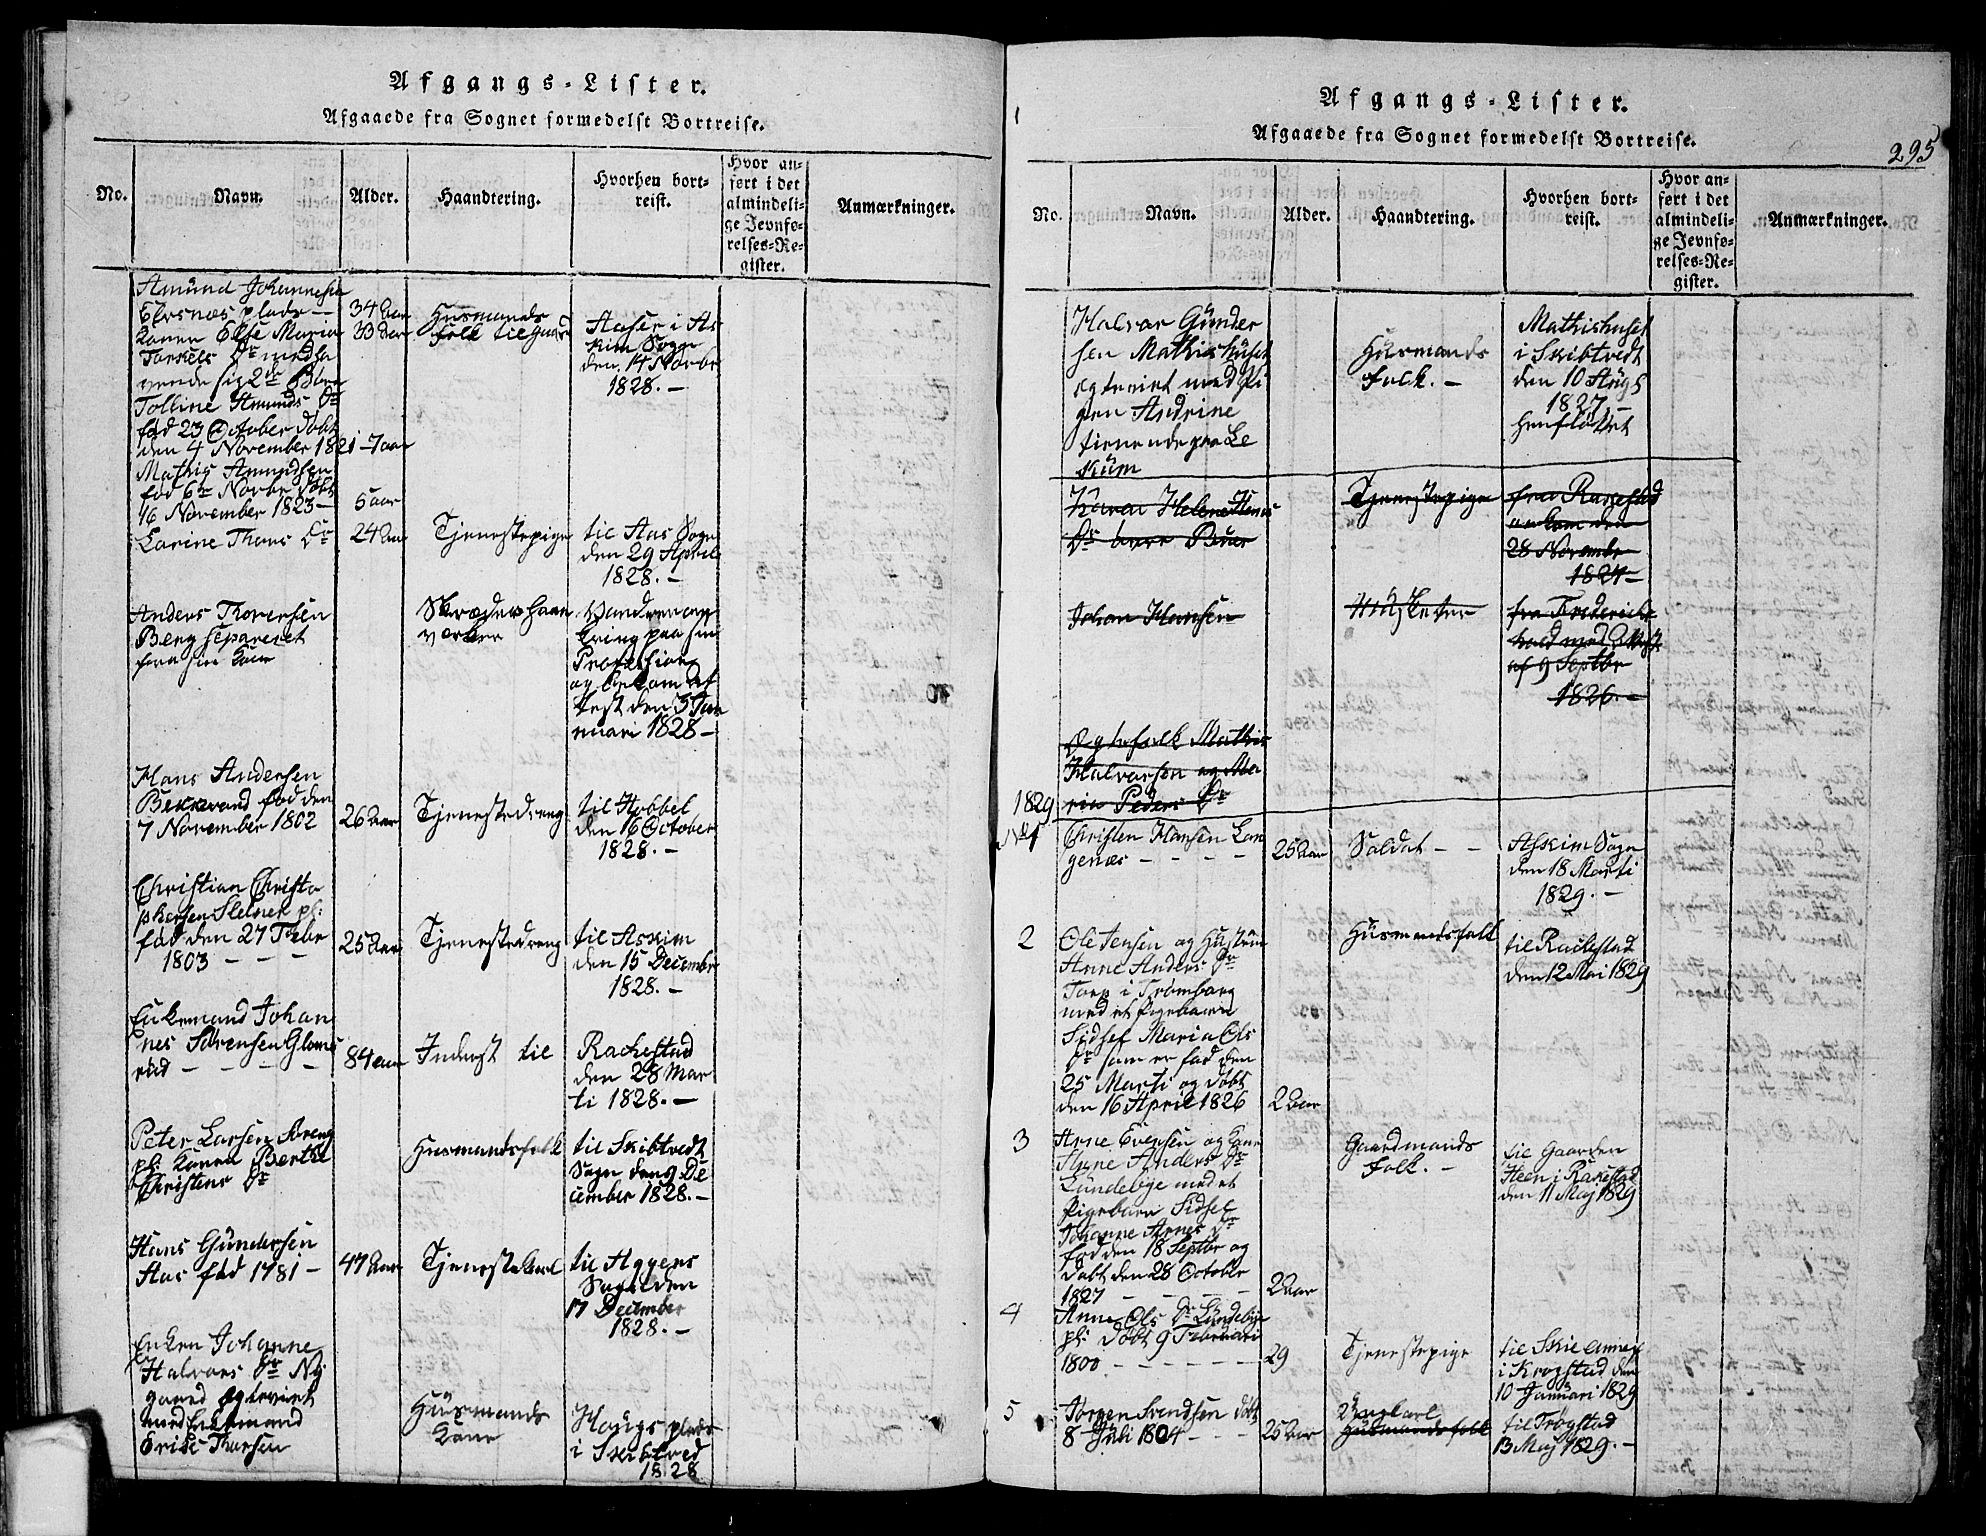 Afgangs-Lister.
Afgaaede fra Sognet formedelst Bortreise.
No.
Navn.
Alder.
Haandtering.
Hvorhen bort-
reist.
Hvor an-
ført i det
almindeli-
ge Jevnfø-
relses-Re-
gister.
Anmærkninger.
Amund Johannesen
plads
Konen Else Maria
Torkels Dr medha
vende sig 2de Børn
Tolline Amunds Dr
fød 23 October døbt
den 4 November 1821
Mathis Amundsen
fød 6te Novbr døbt
16 November 1823 -
34 aar
33 aar
7 aar
5 aar
Husmands
folk til
i As
kim Sogn
den 14 Novbr
1828. -
Larine Thors Dr
24 aar
Tjenestepige
til Aas Sogn
den 29 April
1828. -
Anders Thoresen
Berg separeret
fra sin Kone
Skræder haan
værker
Vandrer om
kring paa sin
Profession
og bekom At
test den 3 Jan
nuari 1828 -
Hans Andersen
Bekkevand fød den
7 November 1802
26 aar
Tjenestedreng
til Hobbel
den 16 October
1828. -
Christian Christo
phersen pl:
fød den 27 Febr
1803 - - -
25 aar
Tjenestedreng
til Askim
den 15 Decembr
1828. -
Enkemand Johan
nes Sørensen Glomsrød
- - - -
84 aar
Inderst til
Rackestad
den 28 Mar
ti 1828. -
Peter Larsen
pl: Konen Berthe
Christens Dr
Husmandsfolk
til Skibtvedt
Sogn den 9 De
cember 1828. -
Hans Gundersen
Aas fød 1781 -
47 aar
Tjenestekarl
til Aggers
Sogn den
17 December
1828. -
Enken Johanne
Halvors Dr Ny
gaard egtevivt
med Enkemand
Thorsen
Husmands
Kone
Hougs plads
i Skibtved
1828
Afgangs-Lister.
Afgaaede fra Sognet formedelst Bortreise.
295
No.
Navn.
Alder.
Haandtering.
Hvorhen bort-
reist.
Hvor an-
ført i det
almindeli-
ge Jevnfø-
relses-Re-
gister.
Anmærkninger.
Halvor Gunder
sen Mathishuset
egtevivt med Pi
gen Andrine
tienende paa Le
kum
Husmands
Folk. -
Mathishuset
i Skibtvedt
den 10 Augs
1827 -
henfløttet
Karen Helene Hans
Dr
Tjenestepige
fra Rakkestad
ankom den
28 Novembr
1824 -
Johan Hansen
Musketer
fra Friderichs
hald med Attest
af 9 Septbr
1826. -
Egtefolk Mathis
Halvorsen og Ma
ria Peders Dr
1829
No 1
Christen Hansen Lan
genæs - - - -
25 aar
Soldat - -
Askim Sogn
den 18 Marti
1829. -
2
Ole Jensen og Hustrue
Anne Anders Dr
Torp i Trømborg
med et Pigebarn
Sidsel Maria Ols
Dr som er fød den
25 Marti og døbt
den 16 April 1826
2 aar
Husmandsfolk
til Rackestad
den 12 Mai 1829
3
Arne Evensen og Kone
Anne Anders Dr
Lundebye med et
Pigebarn Sidsel
Johanne Arnes Dr
fød den 18 Septbr og
døbt den 28 October
1827 - - - -
2 aar
Gaardmands
Folk. -
til Gaarden
Heen i Rakestad
den 11 Maj 1829
4
Anne Ols Dr Lundebye
pl: døbt 9 Februari
1800 - - - - - -
29
Tjenestepige
til Skie Annex
i Krogstad den
10 Januari 1829
5
Jørgen Svendsen døbt
8 Juli 1804 - - -
25 aar
Ungkarl
Husmandsfolk
til Trøgstad
13 Maj 1829. -